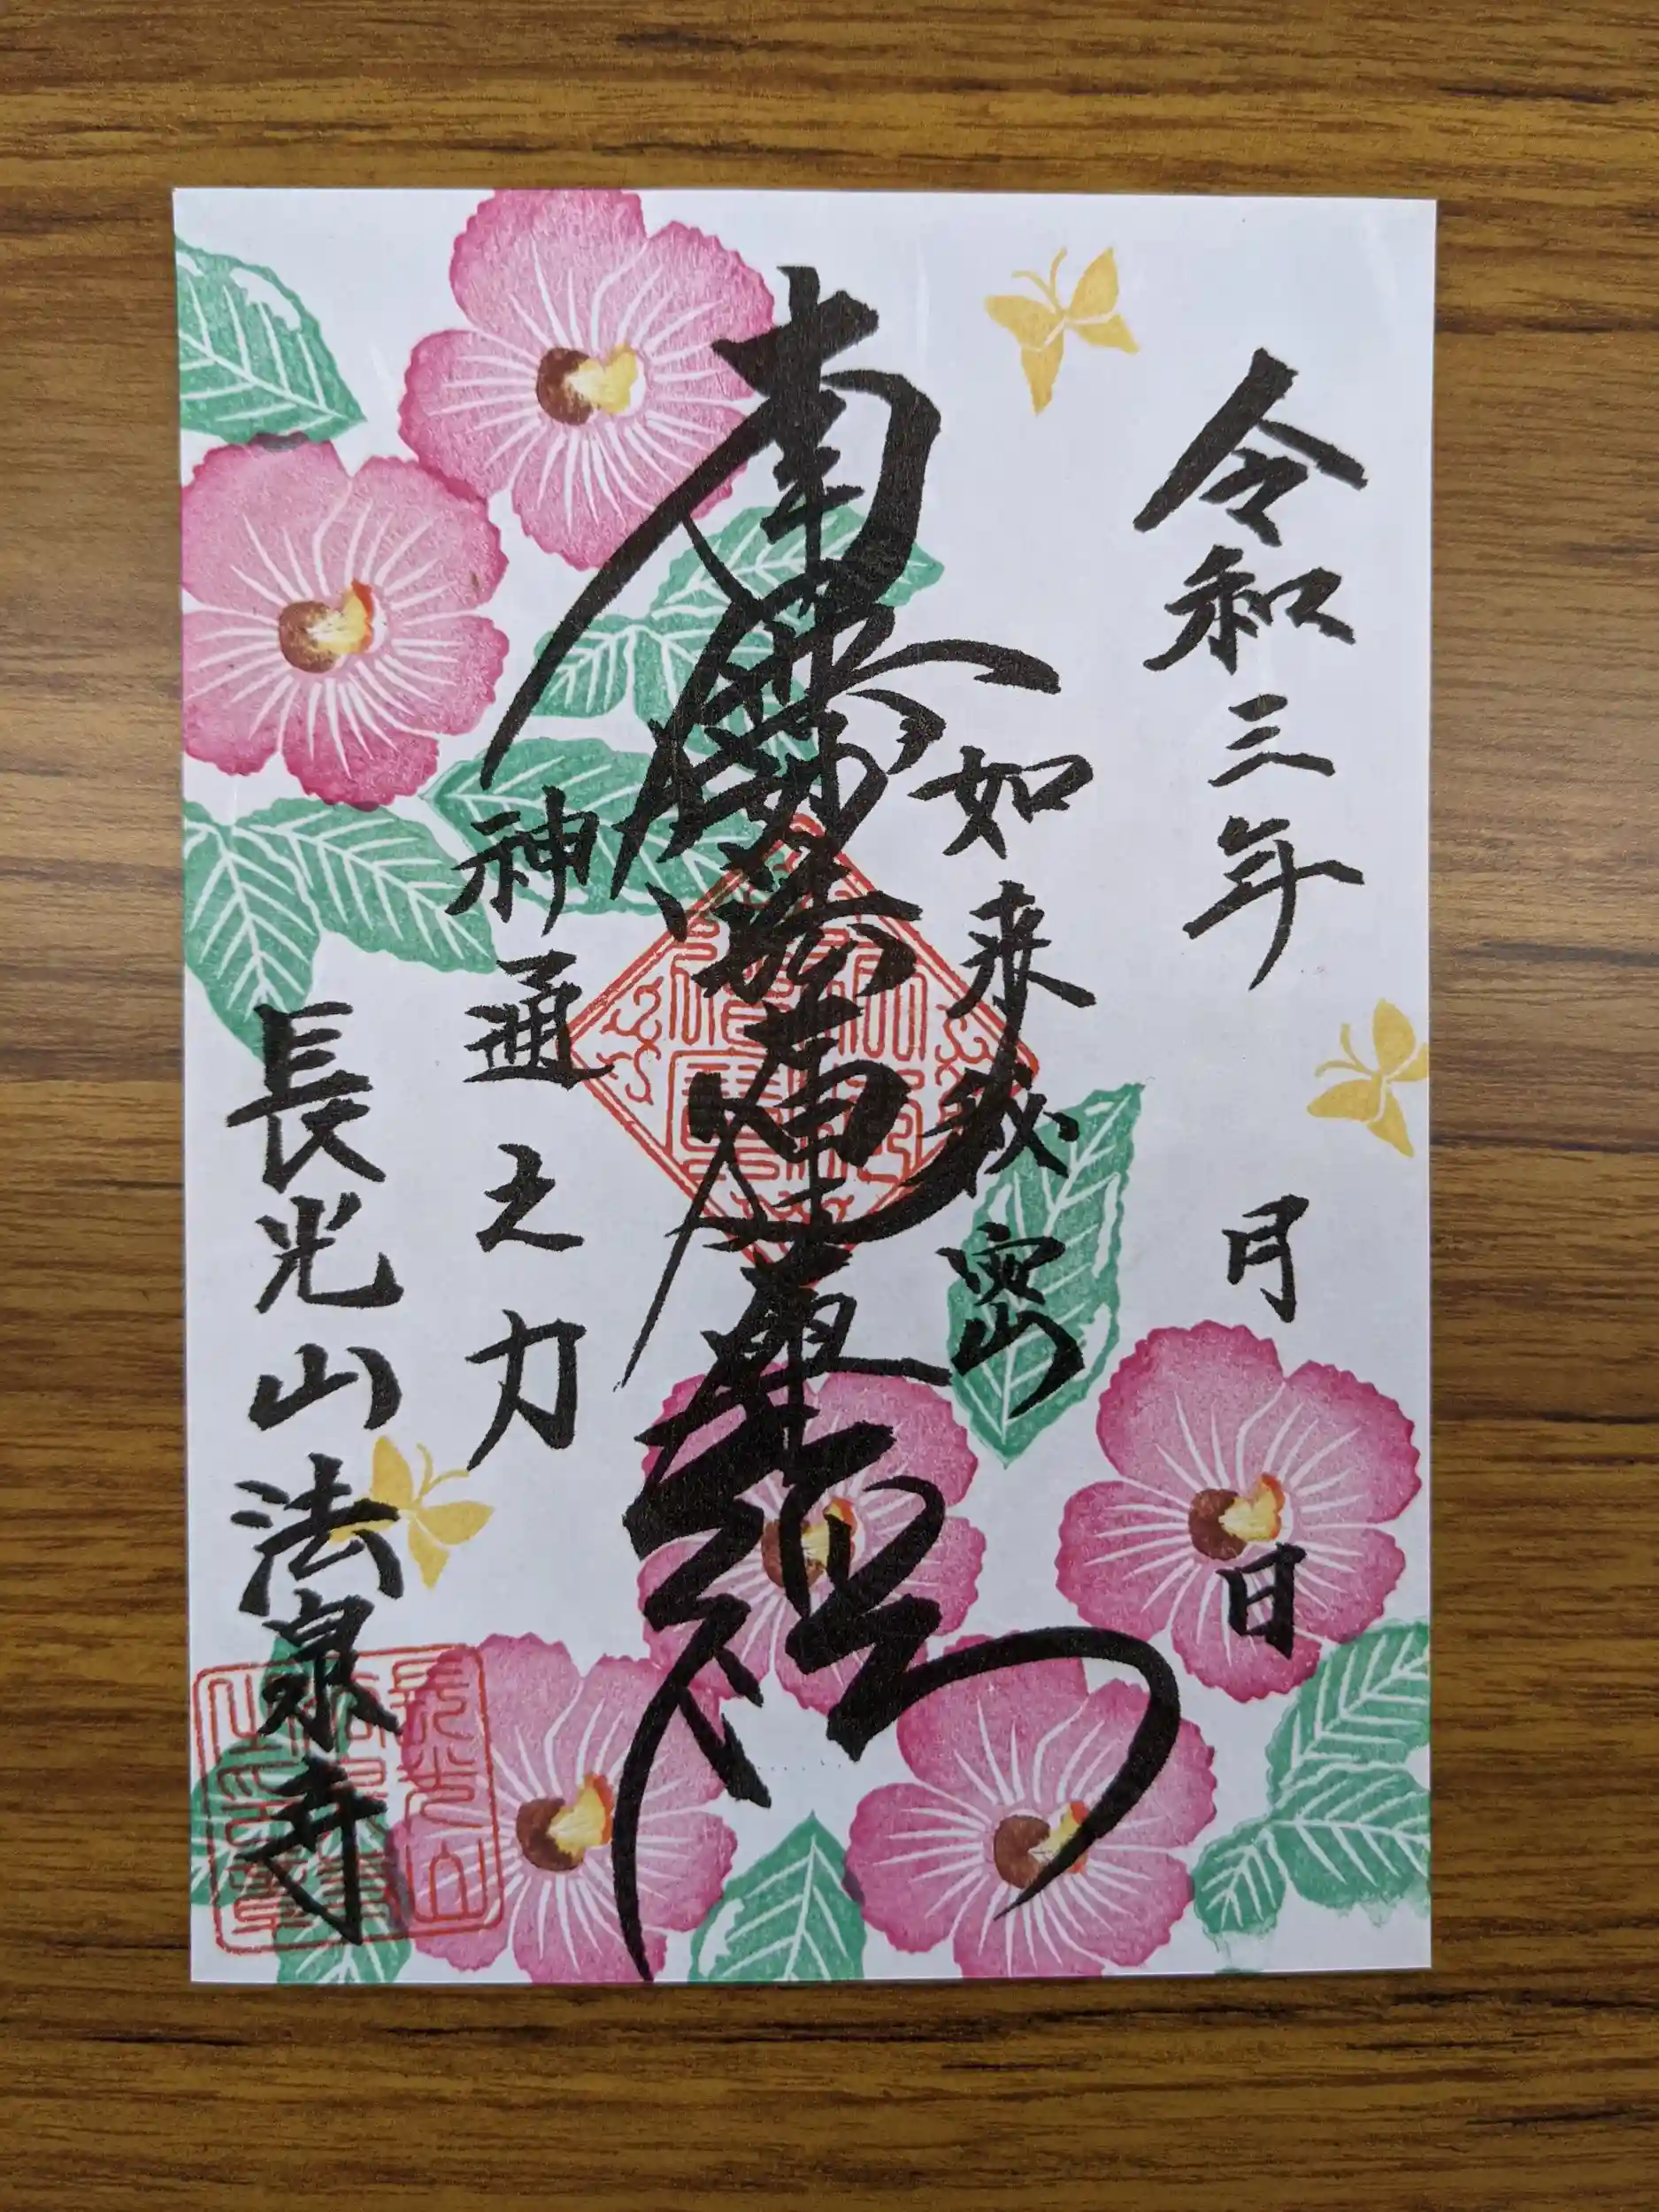 令和三年 月 日
如来秘密
南無妙法蓮華經
神通之力
長光山法泉寺